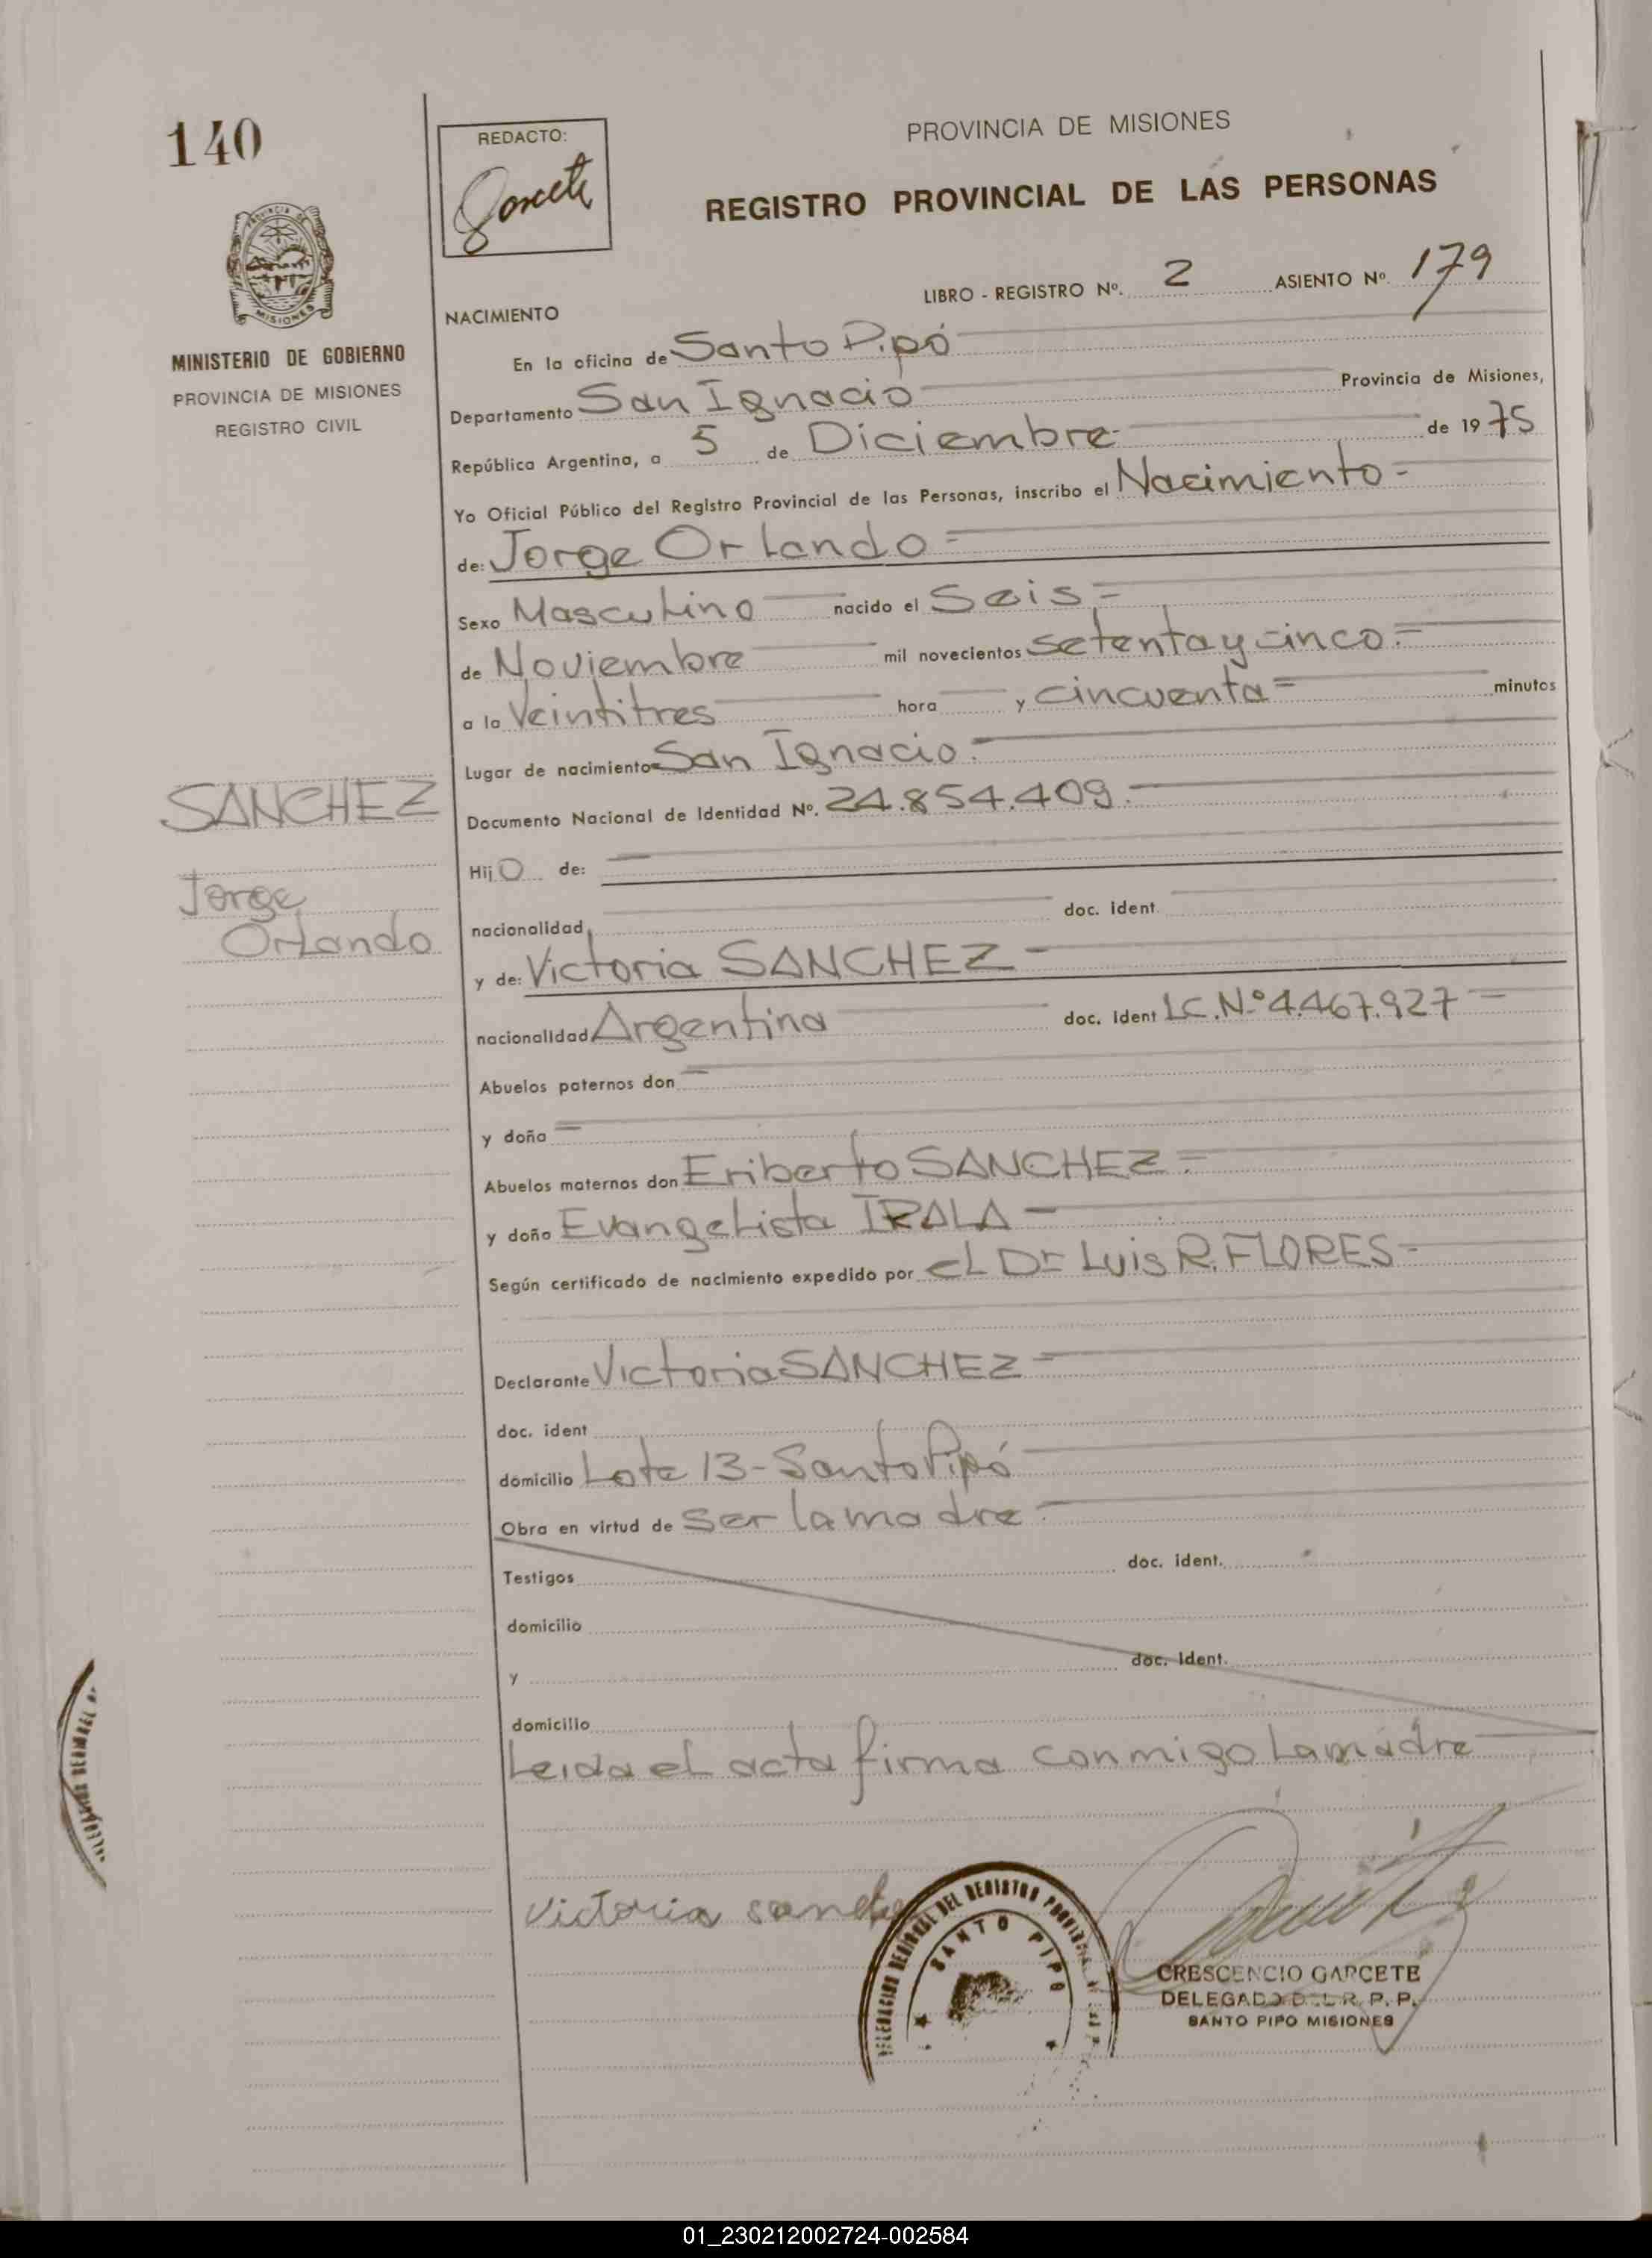 140
REDACTO:
Garcete
PROVINCIA DE MISIONES
REGISTRO PROVINCIAL DE LAS PERSONAS
MISIONES
MINISTERIO DE GOBIERNO
PROVINCIA DE MISIONES
REGISTRO CIVIL
LIBRO - REGISTRO Nº. 2 ASIENTO Nº. 179
NACIMIENTO
En la oficina de Santo Pipó
Departamento San Ignacio Provincia de Misiones,
República Argentina, a 5 de Diciembre de 1975
Yo Oficial Público del Registro Provincial de las Personas, inscribo el Nacimiento
de: Jorge Orlando
Sexo Masculino nacido el Seis
de Noviembre mil novecientos setenta y cinco
a la Veintitres hora y cincuenta minutos
Lugar de nacimiento San Ignacio.
Documento Nacional de Identidad Nº. 24.854.409.
SANCHEZ
Jorge
Orlando
Hijo de:
nacionalidad doc. ident.
y de: Victoria SANCHEZ
nacionalidad Argentina doc. ident L.C. Nº 4.467.927
Abuelos paternos don
y doña
Abuelos maternos don Eriberto SANCHEZ
y doña Evangelista IRALA
Según certificado de nacimiento expedido por el Dr Luis R. FLORES
Declarante Victoria SANCHEZ
doc. ident
domicilio Lote 13 - Santo Pipó
Obra en virtud de ser la madre
Testigos doc. ident.
domicilio
y doc. ident.
domicilio
Leida el acta firma conmigo la madre
Victoria Sanchez
DELEGACION SECCIONAL DEL REGISTRO PROVINCIAL DE LAS P
SANTO PIPO
CRESCENCIO GARCETE
DELEGADO DEL R. P. P.
SANTO PIPO MISIONES
01_230212002724-002584